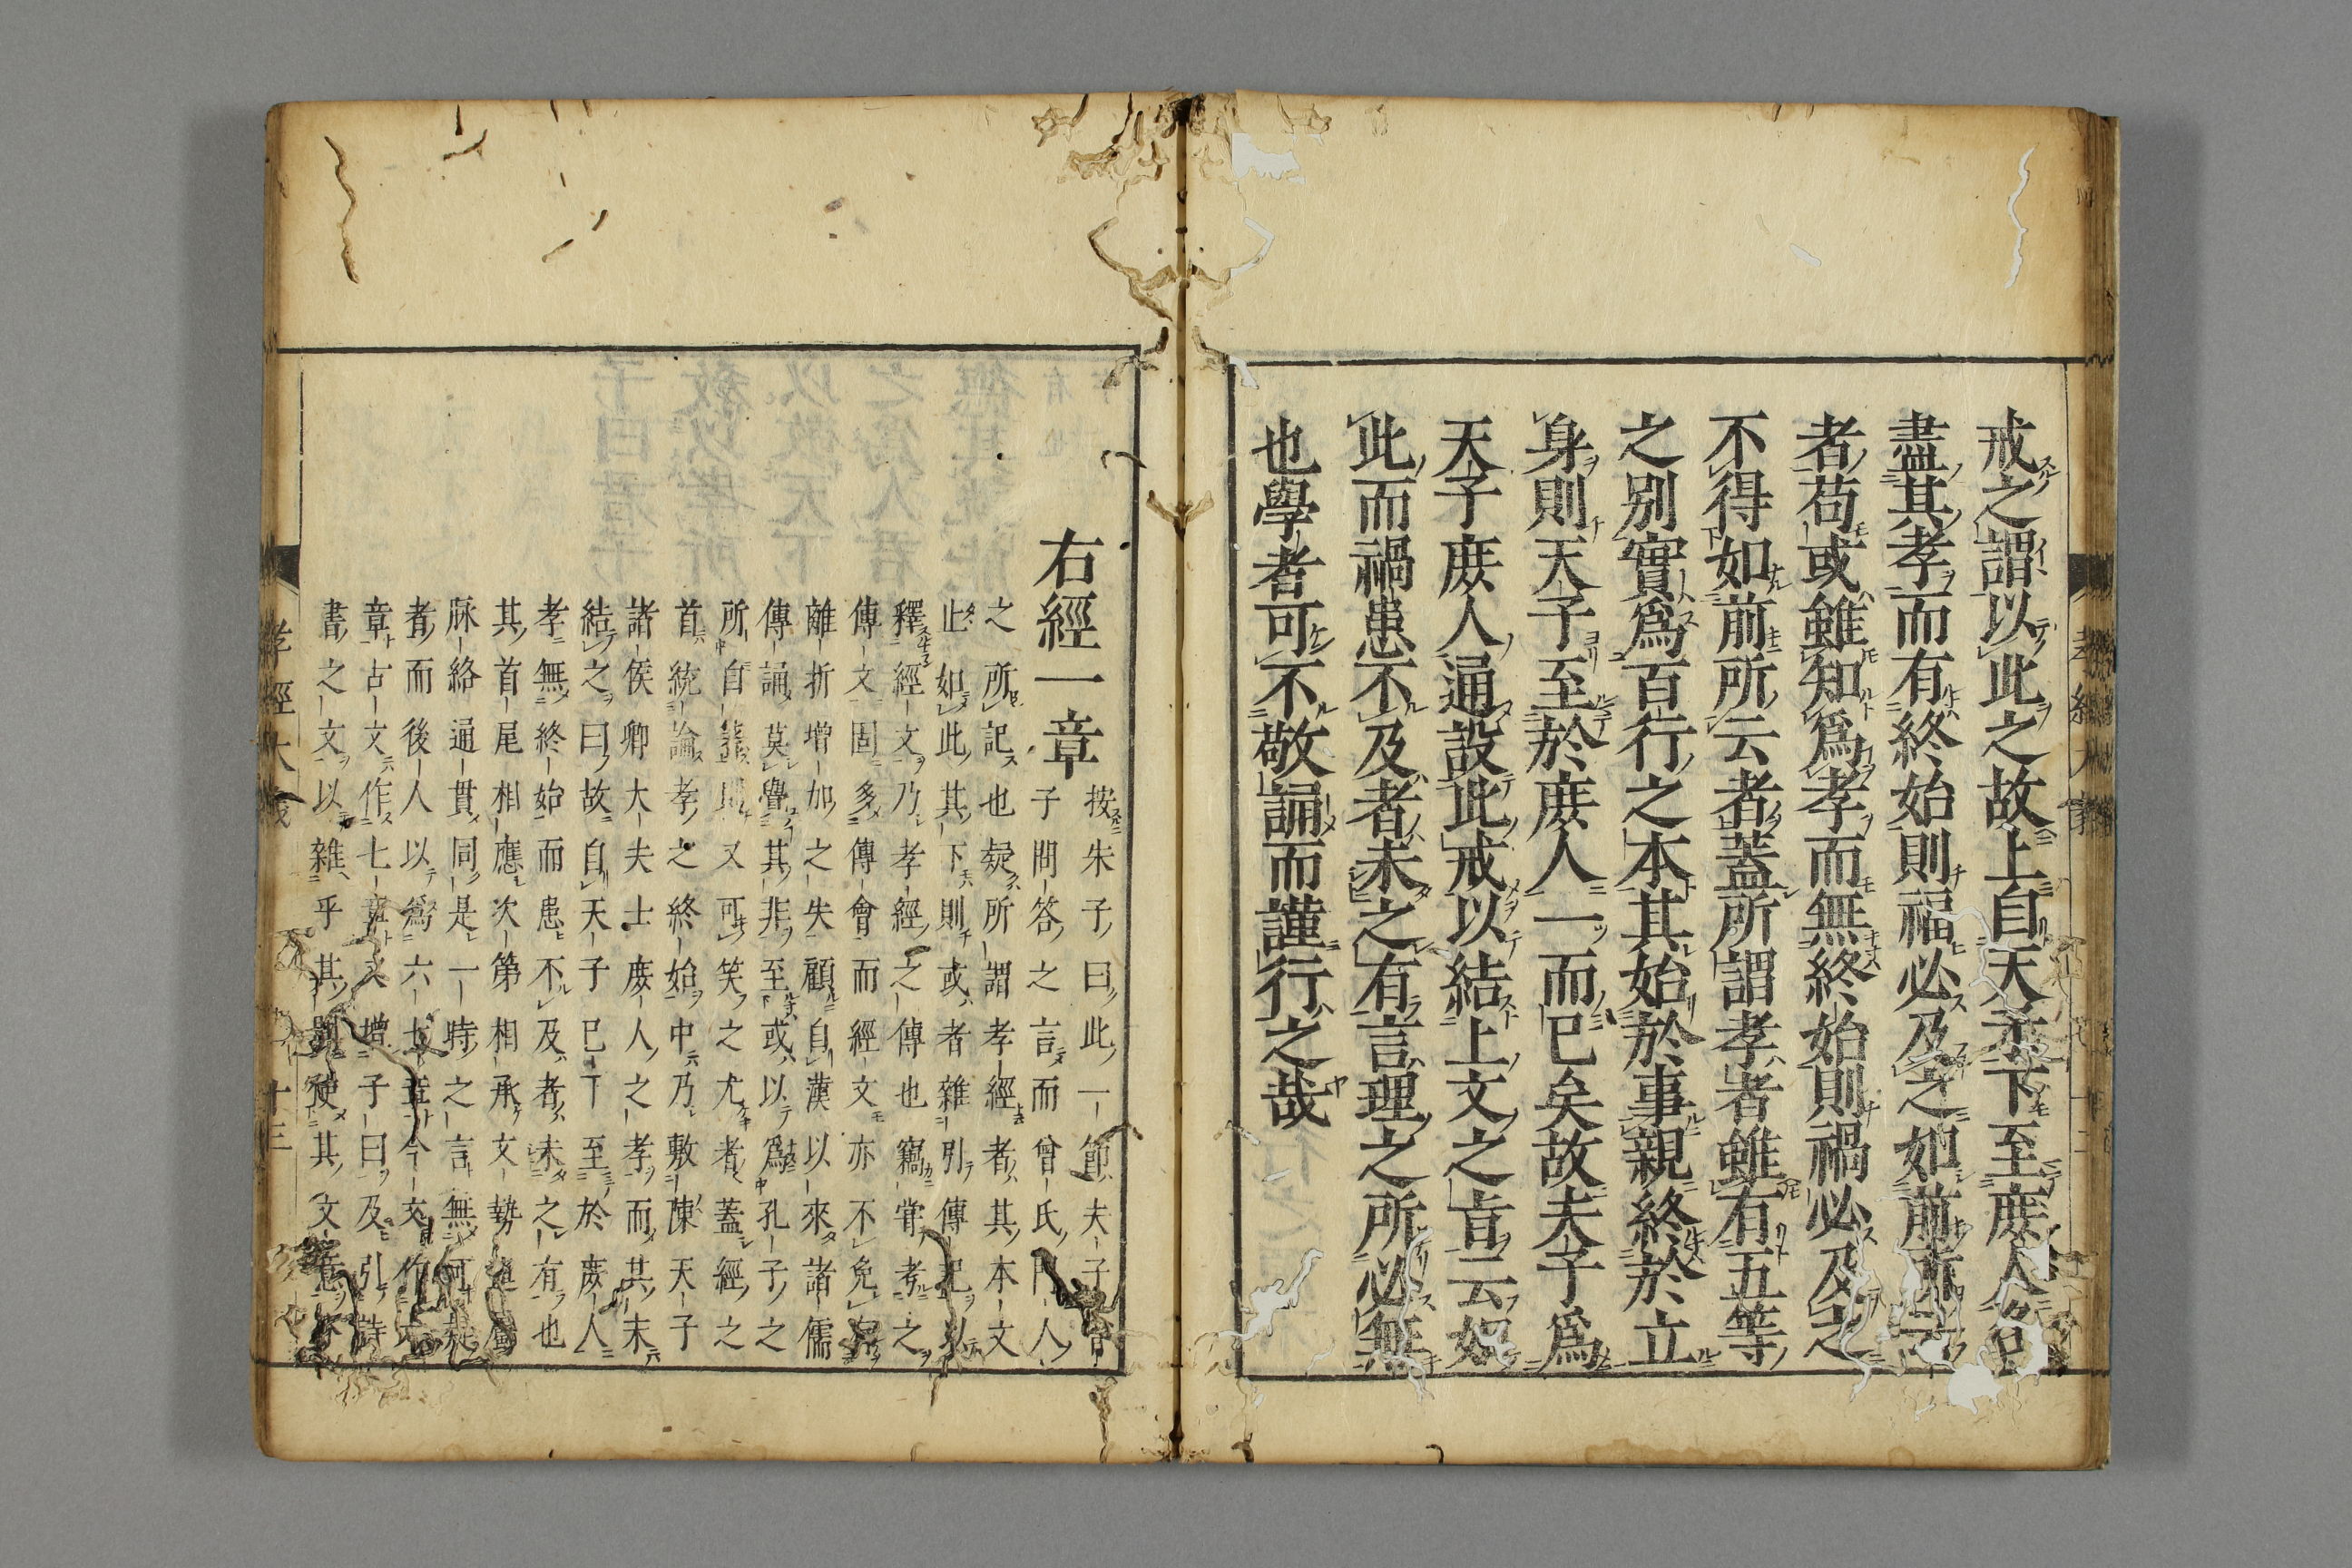 戒之謂以此之故上自天子下至庶人各
盡其孝而有終始則福必及之如前所云
者苟或雖知爲孝而無終始則禍必及之
不得如前所云者蓋所謂孝者雖有五等
之別實爲百行之本其始於事親終於立
身則天子至於庶人一而已矣故夫子爲
天子庶人通設此戒以結上文之㫖云如
此而禍患不及者未之有言理之所必無
也學者可不敬誦而謹行之哉
右經一章
按朱子曰此一節夫子曾
子問答之言而曾氏門人
之所記也疑所謂孝經者其本文
止如此其下則或者雜引傳記以
釋經文乃孝經之傳也竊嘗考之
傳文固多傳會而經文亦不免
離析增加之失顧自漢以來諸儒
傳誦莫覺其非至或以爲孔子之
所自著則又可笑之尤者蓋經之
首統論孝之終始中乃敷陳天子
諸侯卿大夫士庶人之孝而其末
結之曰故自天子已下至於庶人
孝無終始而患不及者未之有也
其首尾相應次第相承文勢連屬
脉絡通貫同是一時之言無可疑
者而後人以爲六七章今文作六
章古文作七章又增子曰及引詩
書之文以雜乎其間使其文意
孝經大義 十三